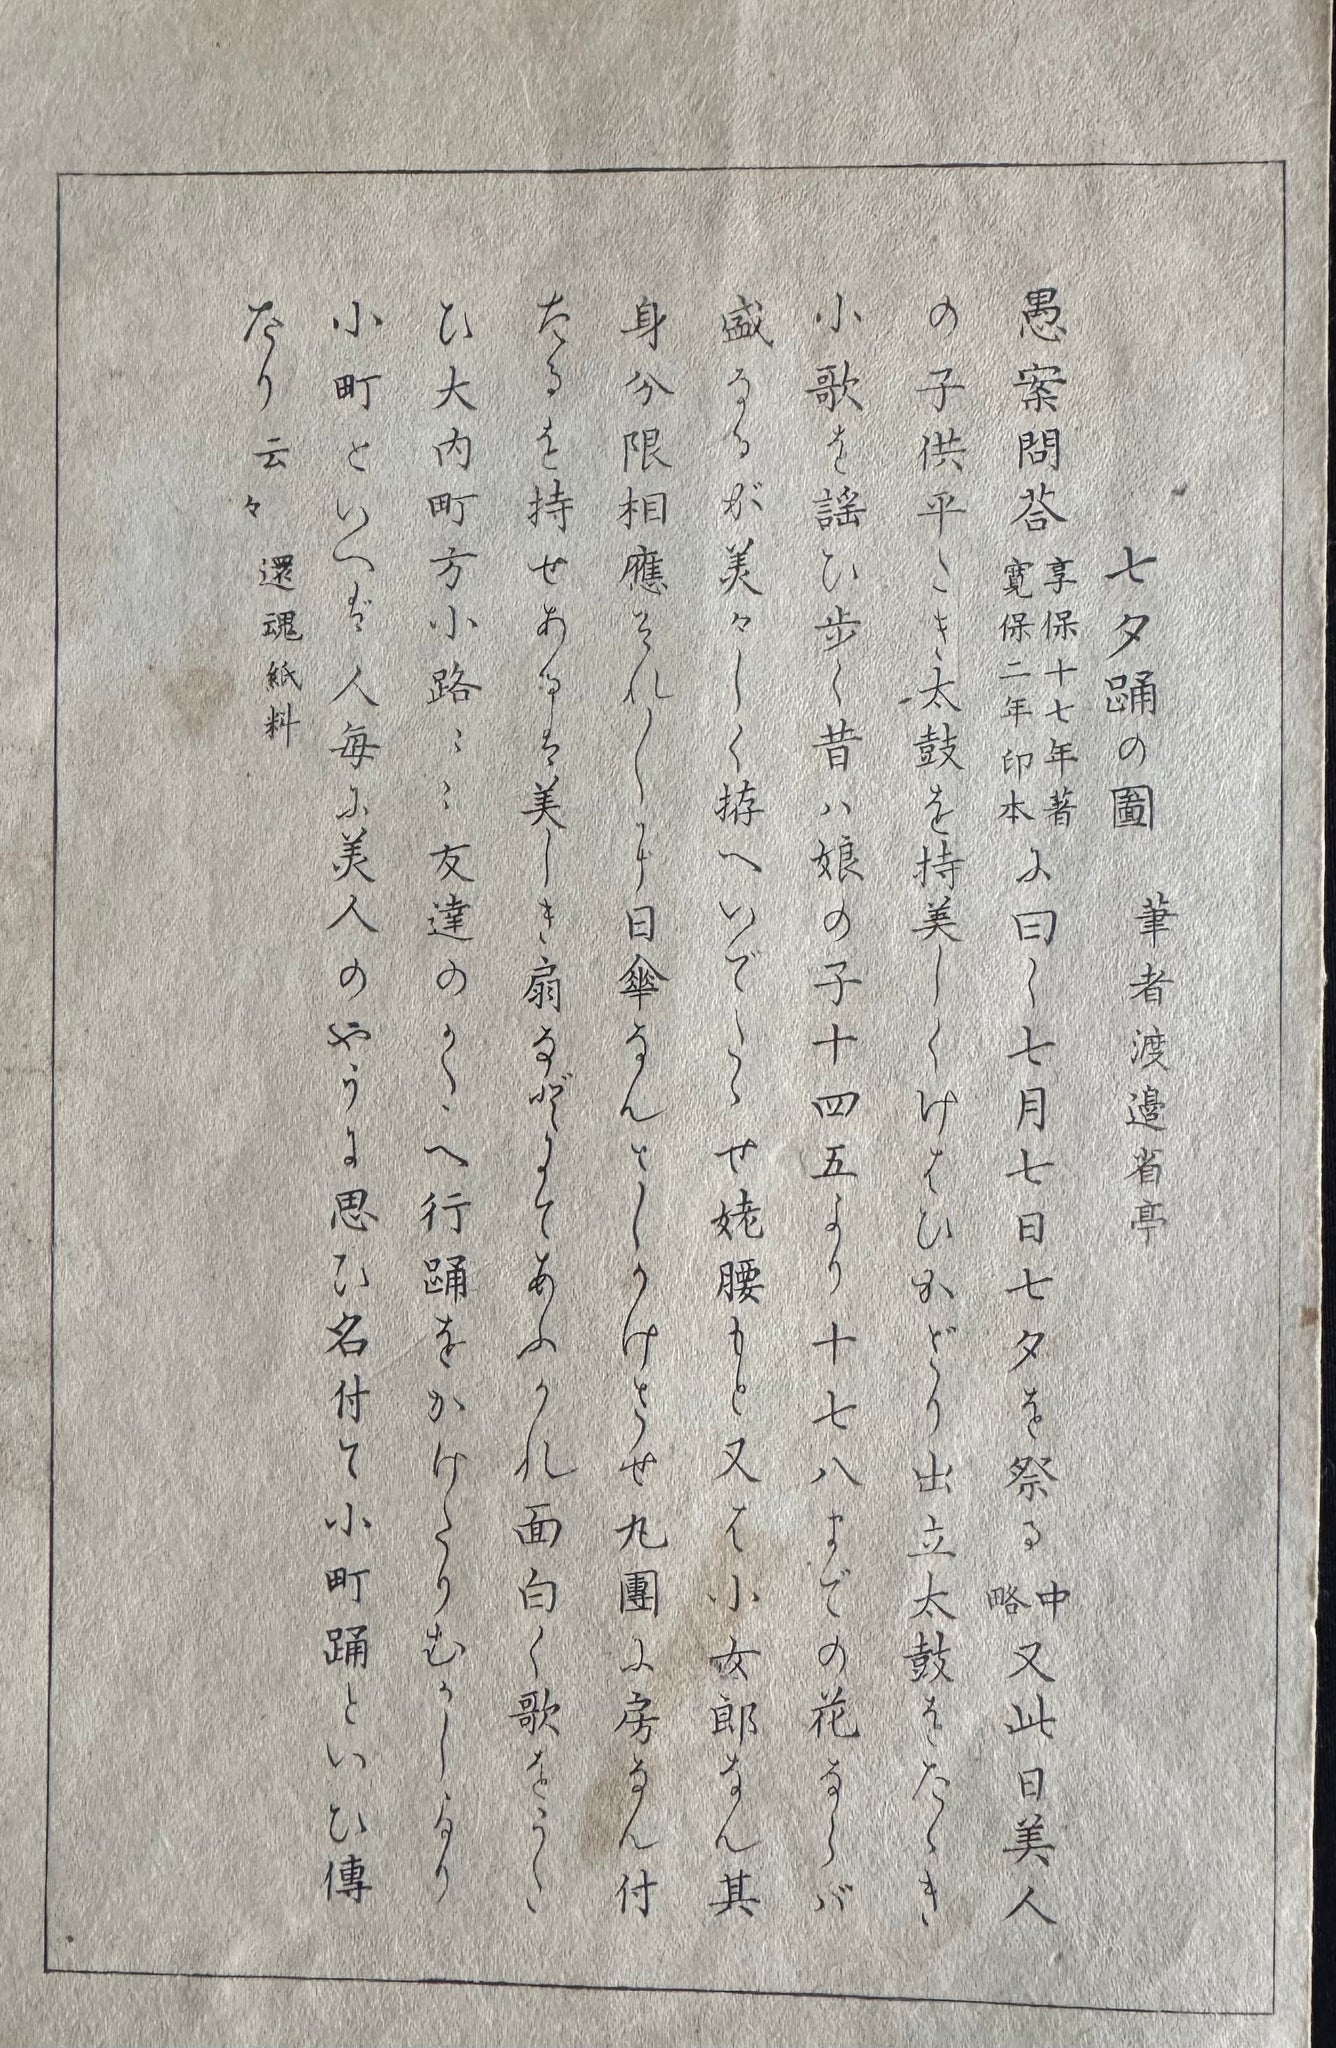 七夕踊の圖　筆者渡邉省亭
愚案問荅 享保十七年著 寛保二年印本 に曰く七月七日七夕を祭る 中略 又此日美人
の子供平たき太鼓を持美しくけはひかざり出立太鼓をたゝき
小歌を謡ひ歩く昔ハ娘の子十四五より十七八までの花ならバ
盛なるが美々しく拵へいでたゝせ姥腰もと又は小女郎なん其
身分限相應それ〳〵に日傘なんさしかけさせ丸團に房なん付
たるを持せあるは美しき扇などにてあふかれ面白く歌をうた
ひ大内町方小路〻〻友達のかたへ行踊をかけたりむかしより
小町といへば人毎に美人のやうに思ひ名付て小町踊といひ傳
たり云々　還魂紙料